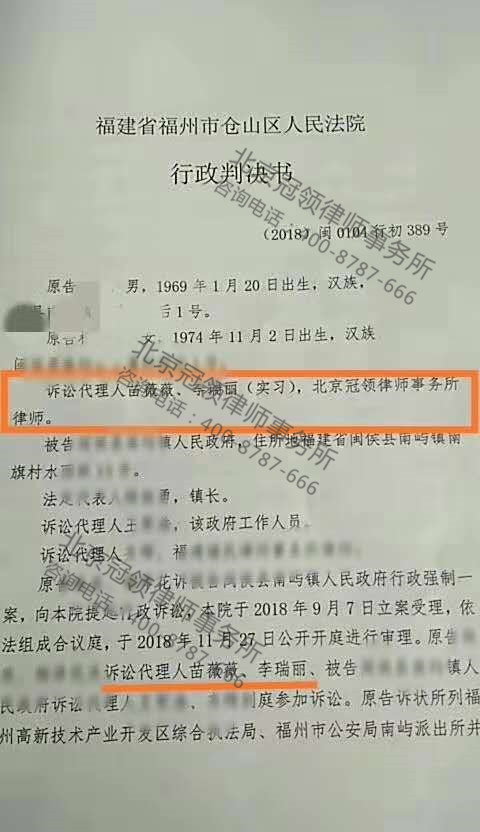 福建省福州市仓山区人民法院
行政判决书
(2018)闽0104行初389号
原告 男，1969年1月20日出生，汉族，
后1号。
原告 女，1974年11月2日出生，汉族
闽
诉讼代理人苗薇薇、李瑞丽（实习），北京冠领律师事务所
律师。
被告 镇人民政府，住所地福建省闽侯县南屿镇南
旗村水
法定代表人 勇，镇长。
诉讼代理人王 ，该政府工作人员。
诉讼代理人
原 花诉被告闽侯县南屿镇人民政府行政强制一
案，向本院提起行政诉讼。本院于2018年9月7日立案受理，依
法组成合议庭，于2018年11月27日公开开庭进行审理。原告
诉讼代理人苗薇薇、李瑞丽、被告 镇人
民政府诉讼代理人 到庭参加诉讼。原告诉状所列福
州高新技术产业开发区综合执法局、福州市公安局南屿派出所并
北京冠领律师事务所
咨询电话：400-8787-666
北京冠领律师事务所
咨询电话：400-8787-666
北京冠领律师事务所
咨询电话：400-8787-666